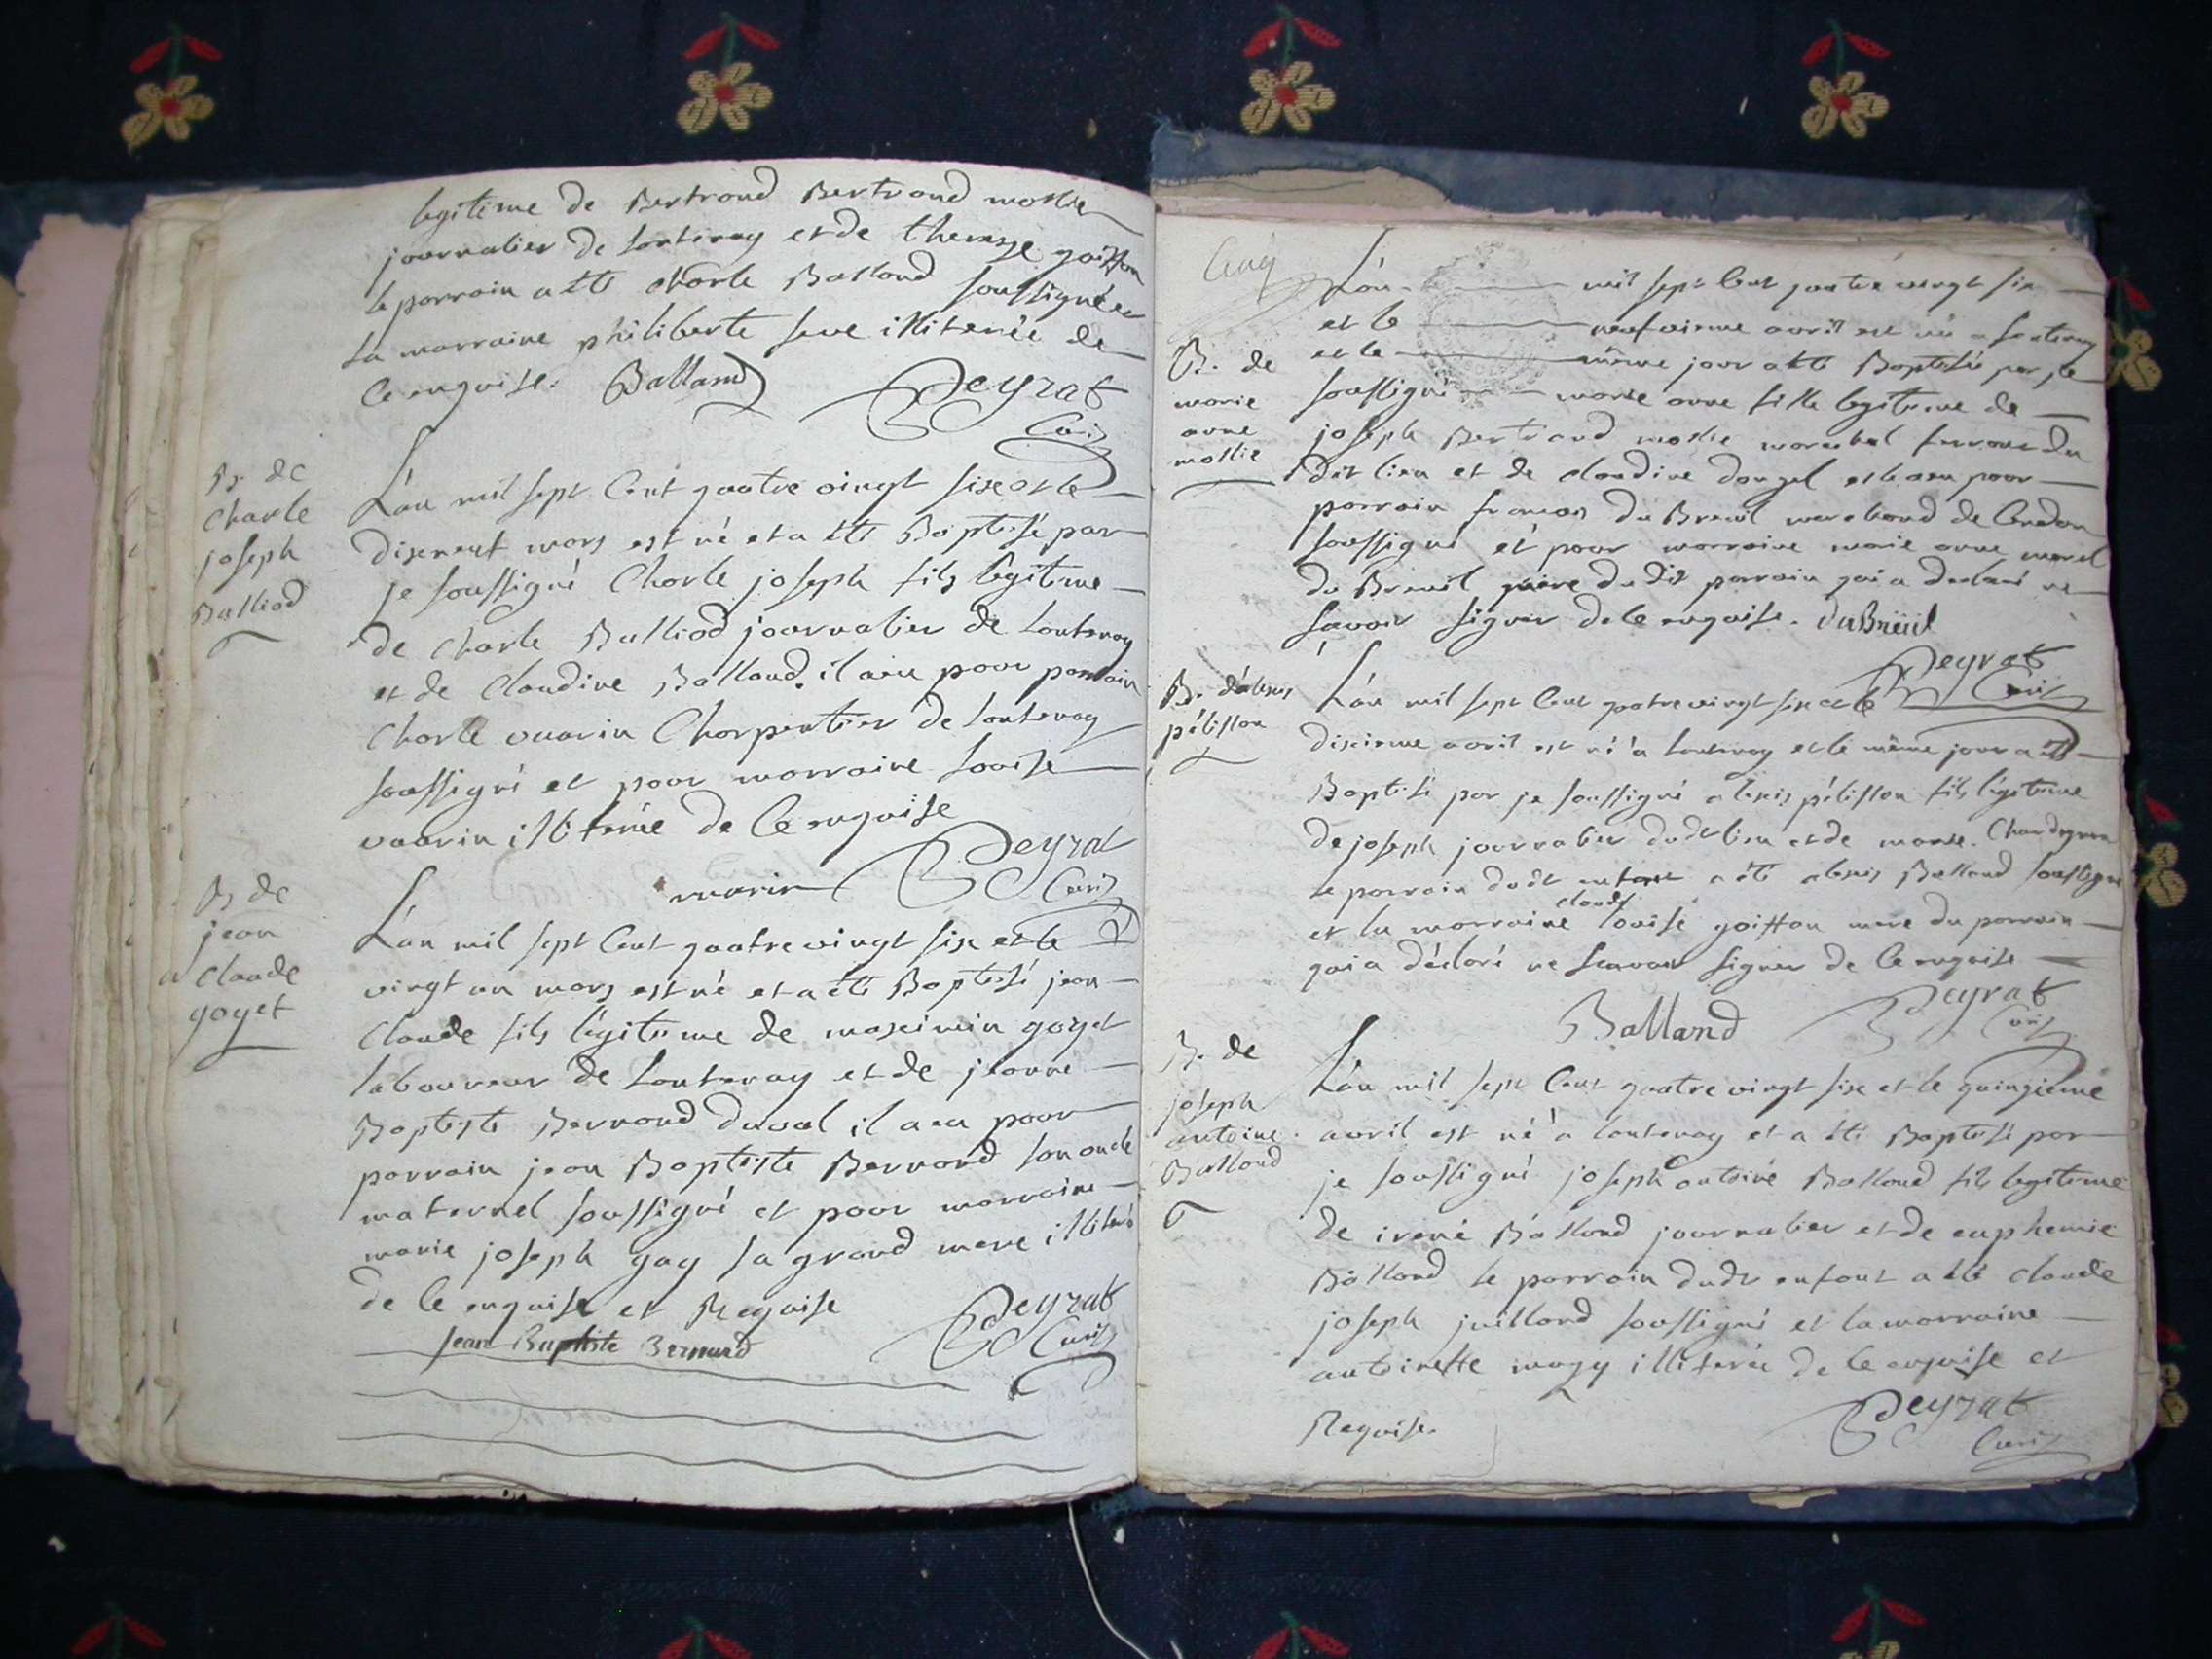 legitime de Bertrand Bertrand mollie
journalier de lantenay et de therese goiffon
le parrain a été charle Balland soussigné et
la marraine philiberte seve illiterée de
ce enquise. Balland Peyrat
Curé
B. de
charle
joseph
Balliod
L'an mil sept cent quatre vingt six et le
dixneuf mars est né et a été Baptisé par
je soussigné Charle joseph fils légitime
de charle Balliod journalier de lantenay
et de Claudine Balland. il a eu pour parrain
Charle vuarin Charpentier de lantenay
soussigné et pour marraine louise
vuarin illiterée de ce enquise
vuarin Peyrat
Curé
B. de
jean
claude
goyet
L'an mil sept cent quatre vingt six et le
vingt un mars est né et a été Baptisé jean
Claude fils légitime de maximin goyet
laboureur de lantenay et de jeanne
Baptiste Bernard duval il a eu pour
parrain jean Baptiste Bernard son oncle
maternel soussigné et pour marraine
marie joseph gay sa grand mere illiteré
de ce enquise et Requise Peyrat
Jean Baptiste Bernard Curé
Cinq
B. de
marie
anne
mollie
L'an mil sept cent quatre vingt six
et le neufvieme avril est née a lantenay
et le même jour a été Baptisée par je
soussigné marie anne fille legitime de
joseph Bertrand mollie marechal ferrant du
dit lieu et de claudine dougel elle a eu pour
parrain francois du Breuil marchand de Cerdon
soussigné et pour marraine marie anne morel
du Breuil mère du dit parrain qui a declaré ne
savoir signer de ce enquise. duBreüil
Peyrat
Curé
B. d'alexis
pélisson
L'an mil sept cent quatre vingt six et le
dixieme avril est né a lantenay et le même jour a été
Baptisé par je soussigné alexis pélisson fils légitime
de joseph journalier dudt lieu et de marie.
le parrain dudt enfant a été alexis Balland soussigné
et la marraine claude louise goiffon mere du parrain
qui a déclaré ne scavoir signer de ce enquise
Balland Peyrat
Curé
B. de
joseph
antoine
Balland
L'an mil sept cent quatre vingt six et le quinzieme
avril est né a lantenay et a été Baptisé par
je soussigné joseph antoine Balland fils legitime
de irené Balland journalier et de euphemie
Balland le parrain dudt enfant a été claude
joseph juilland soussigné et la marraine
antoinette mugy illiterée de ce enquise et
Requise. Peyrat
Curé